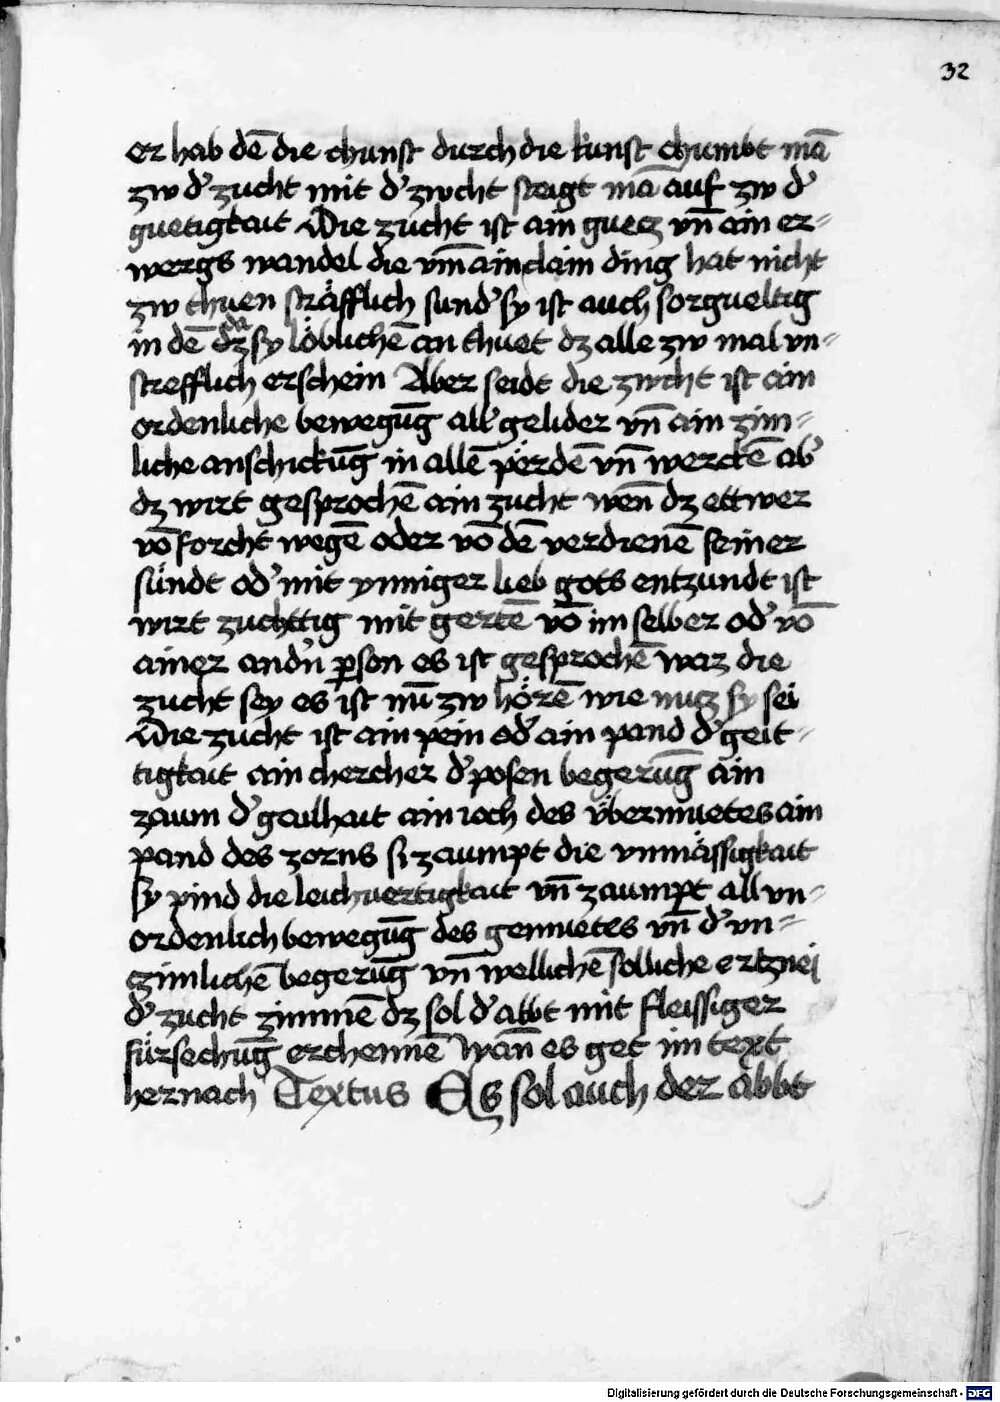 32
er hab dē die chunst durch die kunst chumbt mā
zw dʼ zucht mit dʼ zwcht steigt mā auf zw dʼ
guetigkait Die zucht ist ain guetz vn̄ ain er-
wergs wandel die vm̄ ainclain ding hat nicht
zw thuen sträfflich sundʼ sy ist auch sorgueltig
in dē dʒ da sy löblichē an thuet dʒ alle zw mal vn-
strefflich erschein Aber seidt die zwcht ist ain
ordenliche bewegūg allʼ gelider vn̄ ain zim-
liche anschickūg in allē pärdē vn̄ werckē abʼ
dʒ wirt gesprochē ain zucht wen̄ dʒ ettwer
vō forcht wegē oder vō dē verdienē seiner
sündt odʼ mit ynniger lieb gots entzundt ist
wirt zuchttig mit gertē vō im selber odʼ vō
ainer andʼn ꝑson es ist gesprochē waz die
zucht sey es ist nū zw hörē wie nutz sy sei
Die zucht ist ain pein odʼ ain pand dʼ geit-
tigkait ain chercher dʼ posen begerūg ain
zaum dʼ geulhait ain ioch des übermuetes ain
pand des zorns si zaumpt die vnmässigkait
sy pind die leichuertigkait vn̄ zaumpt all vn-
ordenlich bewegūg des gemuetes vn̄ dʼ vn-
zimlichē begerūg vn̄ wellichē solliche ertznei
dʼ zucht zimmē dʒ sol dʼ abbt mit fleissiger
fürsechūg erchennē wan̄ es get im text
hernach Textus Es sol auch der abbt
Digitalisierung gefördert durch die Deutsche Forschungsgemeinschaft - DFG